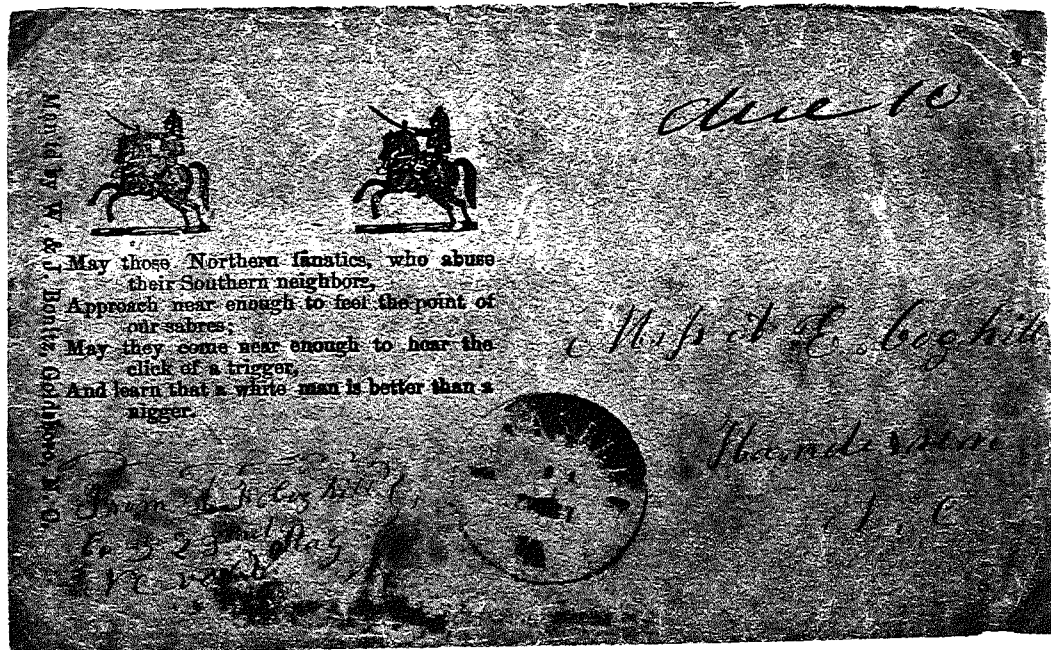 due 10
Manf'd by W. & J. Bonitz, Goldsboro, N. C.
May those Northern fanatics, who abuse
their Southern neighbors,
Approach near enough to feel the point of
our sabres;
May they come near enough to hear the
click of a trigger,
And learn that a white man is better than a
nigger.
Miss A. E. Coghill
Henderson
N. C
From
Co 23
N C